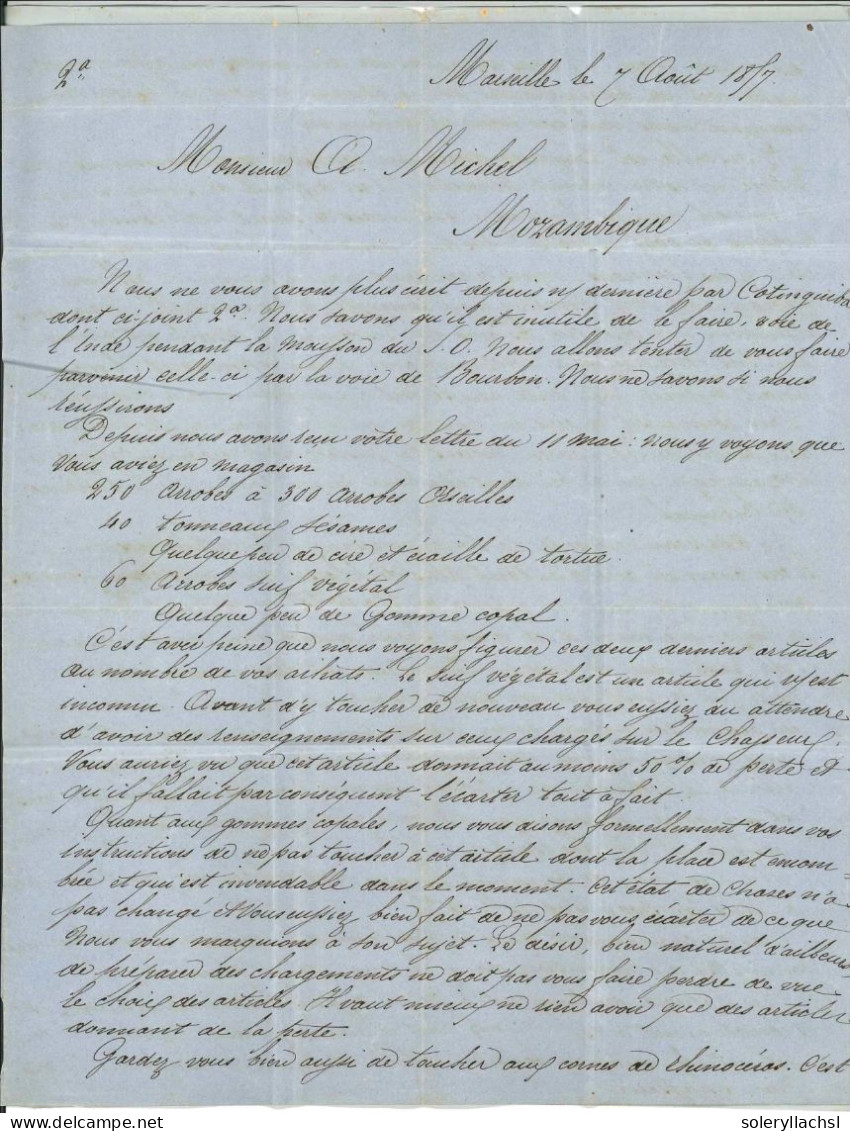 2a
Marseille le 7 Août 1857.
Monsieur A. Michel
Mozambique
Nous ne vous avons plus écrit depuis n/ dernière par Cotinguiba
dont ci-joint 2a. Nous savons qu'il est inutile de le faire, voie de
l'Inde pendant la mousson du S.O. Nous allons tenter de vous faire
parvenir celle-ci par la voie de Bourbon. Nous ne savons si nous
réussirons
Depuis nous avons reçu votre lettre du 11 mai: nous y voyons que
vous aviez en magasin
250 arrobes à 300 arrobes Orseilles
40 tonneaux Sésames
Quelque peu de cire et écaille de tortue.
60 Arrobes suif végétal
Quelque peu de Gomme copal.
C'est avec peine que nous voyons figurer ces deux derniers articles
au nombre de vos achats. Le suif végétal est un article qui v/ est
inconnu. Avant d'y toucher de nouveau vous eussiez du attendre
d'avoir des renseignements sur ceux chargés sur le Chasseur.
Vous auriez vu que cet article donnait au moins 50% de perte et
qu'il fallait par conséquent l'écarter tout à fait.
Quant aux gommes copales, nous vous disons formellement dans vos
instructions de ne pas toucher à cet article dont la place est encom=
brée et qui est invendable dans le moment. Cet état de choses n'a
pas changé et vous eussiez bien fait de ne pas vous écarter de ce que
nous vous marquions à son sujet. Le désir, bien naturel d'ailleurs,
de préparer des chargements ne doit pas vous faire perdre de vue
le choix des articles. Il vaut mieux ne rien avoir que des articles
donnant de la perte.
Gardez vous bien aussi de toucher aux cornes de rhinocéros. C'est
soleryllachsl